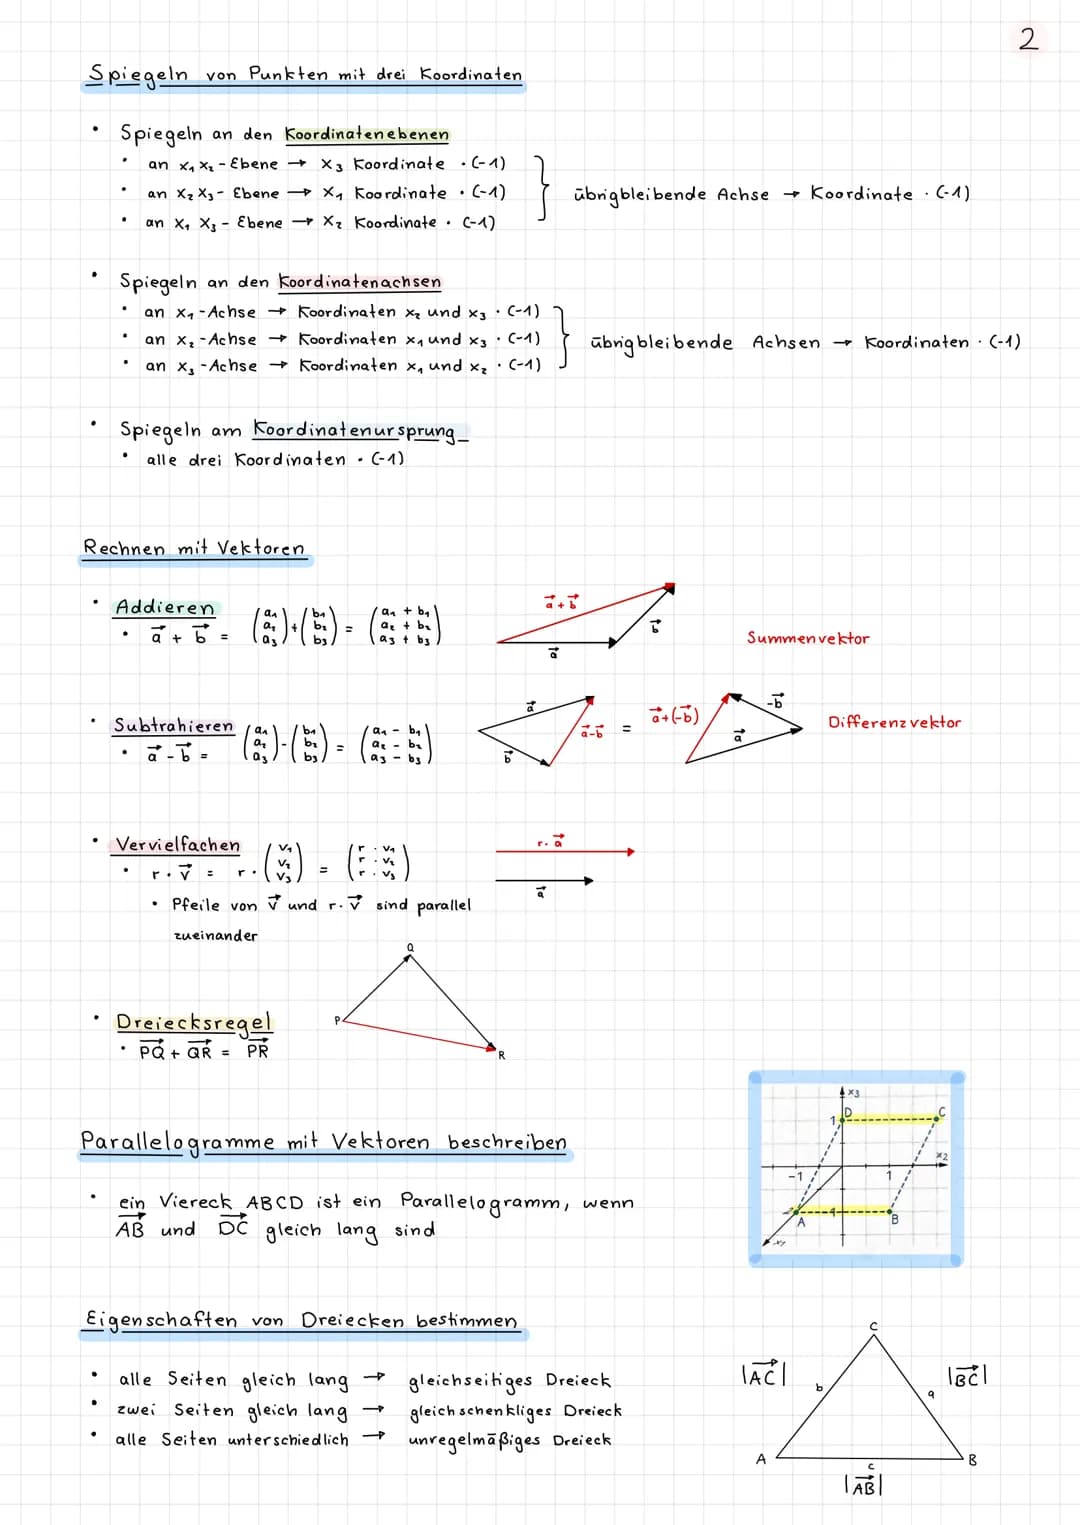 2
Spiegeln von Punkten mit drei Koordinaten
• Spiegeln an den Koordinatenebenen
• an x₁ x₂ - Ebene → x₃ Koordinate · (-1)
• an x₂ x₃ - Ebene → x₁ Koordinate · (-1)
• an x₁ x₃ - Ebene → x₂ Koordinate · (-1)
} übrigbleibende Achse → Koordinate · (-1)
• Spiegeln an den Koordinatenachsen
• an x₁ - Achse → Koordinaten x₂ und x₃ · (-1)
• an x₂ - Achse → Koordinaten x₁ und x₃ · (-1)
• an x₃ - Achse → Koordinaten x₁ und x₂ · (-1)
} übrigbleibende Achsen → Koordinaten · (-1)
• Spiegeln am Koordinatenursprung
• alle drei Koordinaten · (-1)
Rechnen mit Vektoren
• Addieren
• a⃗ + b⃗ = (a₁ a₂ a₃) + (b₁ b₂ b₃) = (a₁ + b₁ a₂ + b₂ a₃ + b₃)
a⃗ + b⃗
a⃗
b⃗
Summenvektor
• Subtrahieren
• a⃗ - b⃗ = (a₁ a₂ a₃) - (b₁ b₂ b₃) = (a₁ - b₁ a₂ - b₂ a₃ - b₃)
a⃗
b⃗
a⃗-b⃗ = a⃗+(-b⃗)
-b⃗
a⃗
Differenzvektor
• Vervielfachen
• r · v⃗ = r · (v₁ v₂ v₃) = (r · v₁ r · v₂ r · v₃)
r · a⃗
a⃗
• Pfeile von v⃗ und r · v⃗ sind parallel
zueinander
• Dreiecksregel
• PQ⃗ + QR⃗ = PR⃗
Q
P
R
Parallelogramme mit Vektoren beschreiben
• ein Viereck ABCD ist ein Parallelogramm, wenn
AB⃗ und DC⃗ gleich lang sind
x3
1 D C
x2
-1 1
A -1 B
x1
Eigenschaften von Dreiecken bestimmen
• alle Seiten gleich lang → gleichseitiges Dreieck
• zwei Seiten gleich lang → gleichschenkliges Dreieck
• alle Seiten unterschiedlich → unregelmäßiges Dreieck
C
|AC⃗| b a |BC⃗|
A c B
|AB⃗|